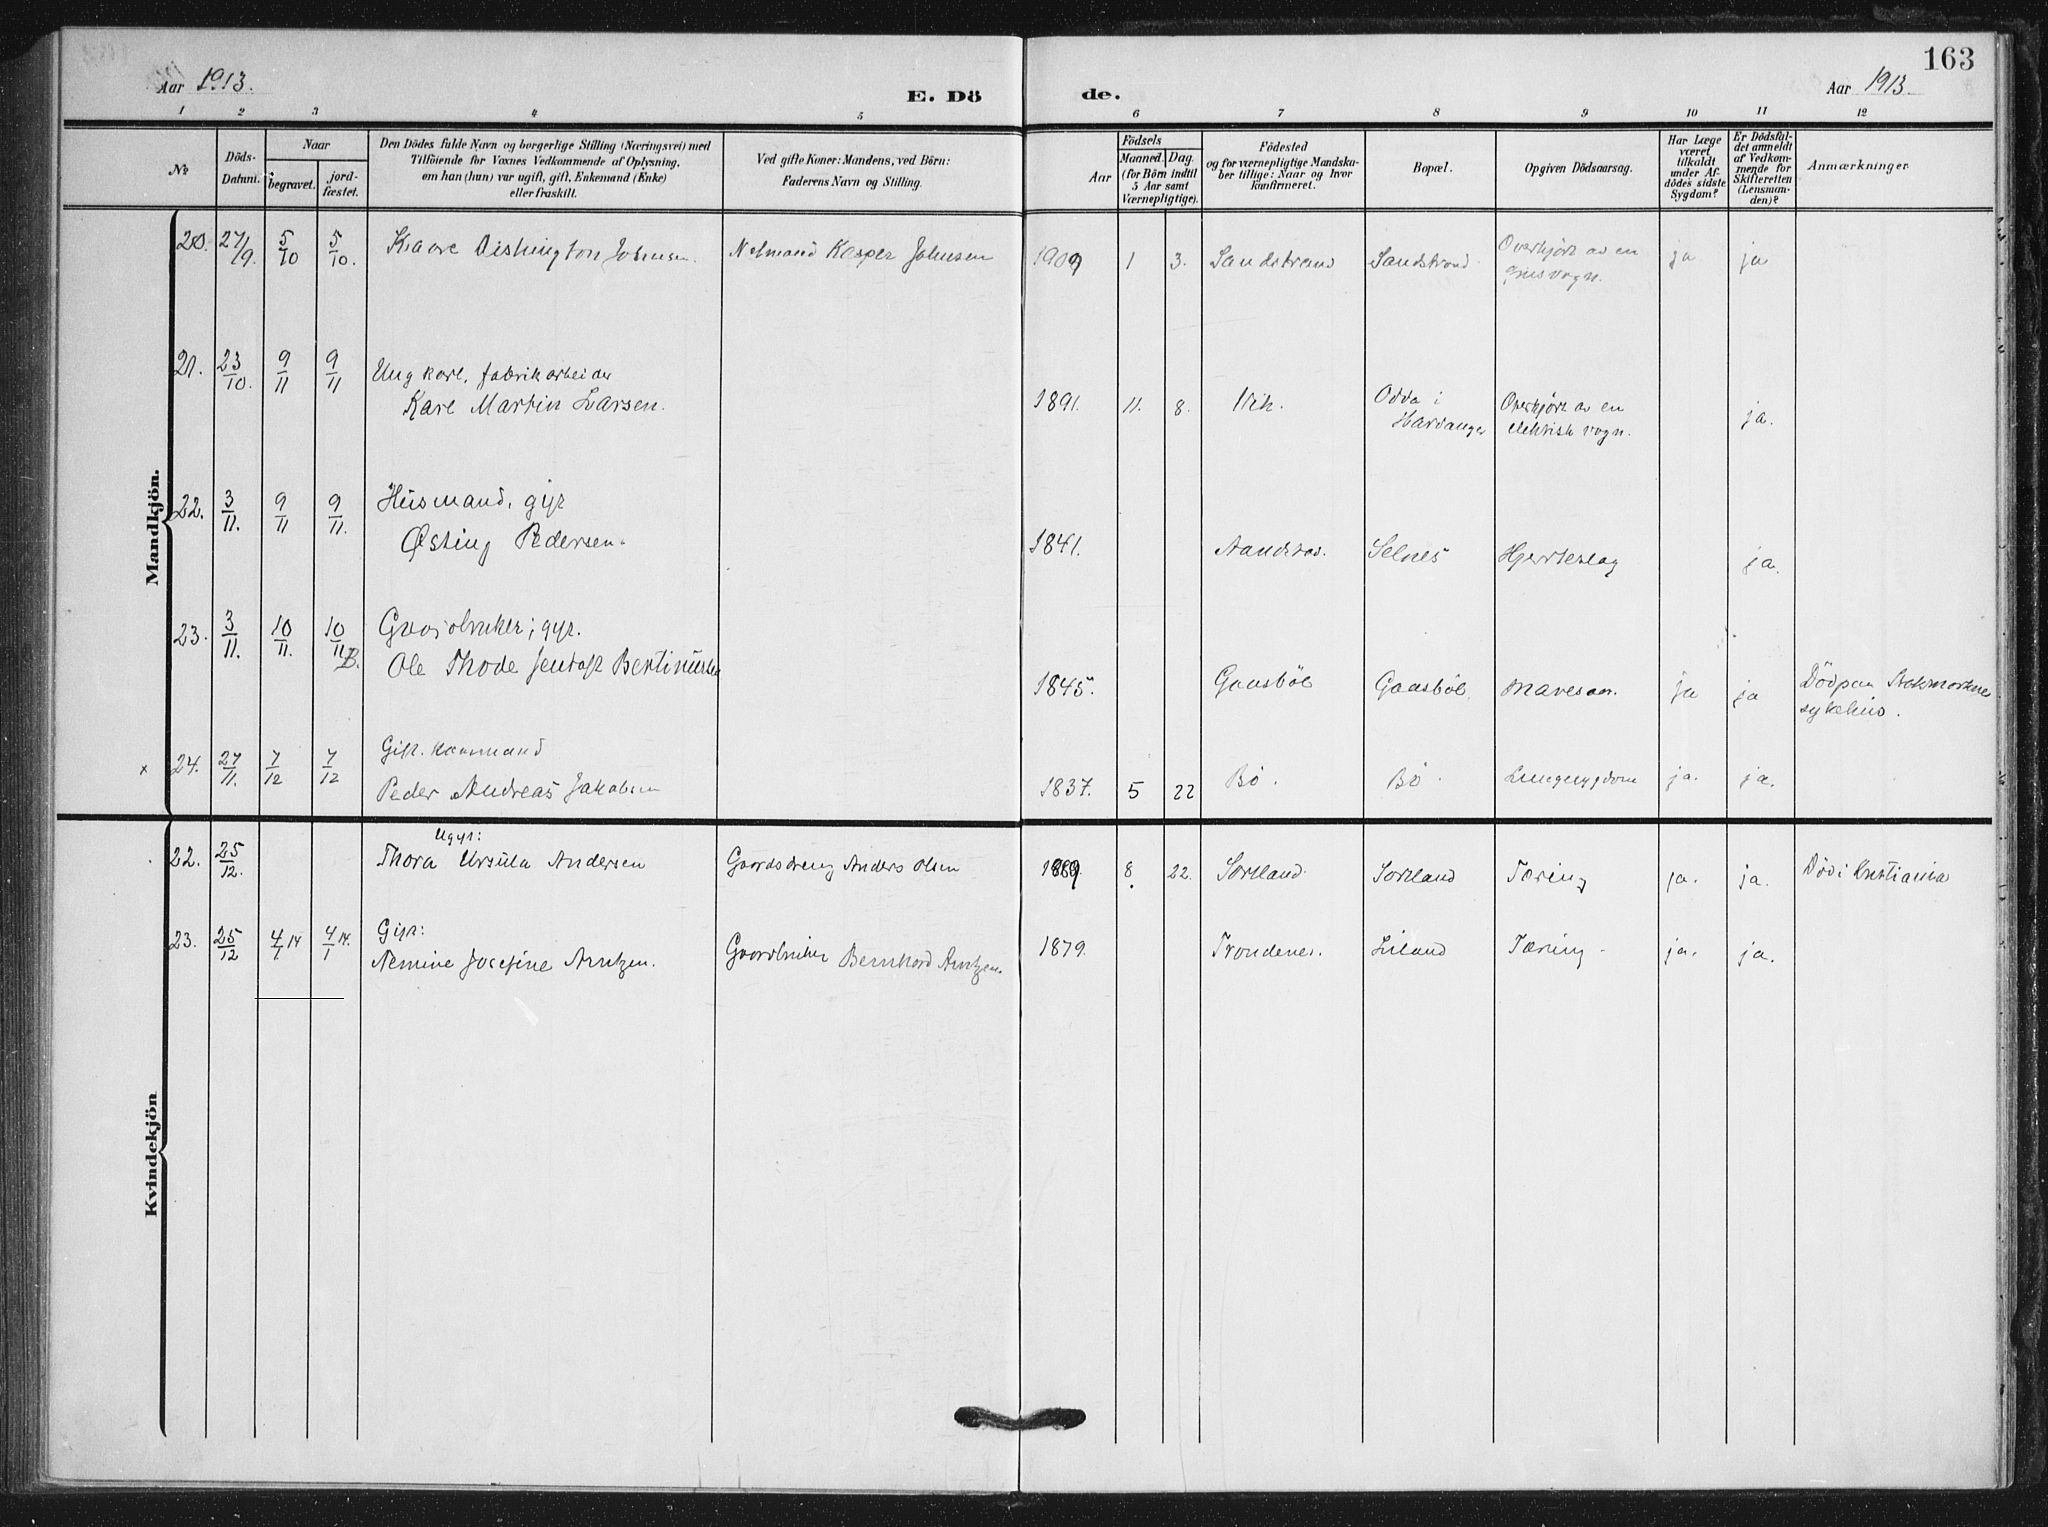 163
Aar 1913.
E. Dö de.
Aar 1913.
1 2 3 4 5 6 7 8 9 10 11 12
No
Döds-
Datum.
Naar
begravet.
jord-
fæstet.
Den Dödes fulde Navn og borgerlige Stilling (Næringsvei) med
Tilföiende for Voxnes Vedkommende af Oplysning,
om han (hun) var ugift, gift, Enkemand (Enke)
eller fraskilt.
Ved gifte Koner: Mandens, ved Börn:
Faderens Navn og Stilling.
Födsels
Aar
Maaned. Dag.
(for Börn indtil
5 Aar samt
Værnepligtige).
Födested
og for værnepligtige Mandska-
ber tillige: Naar og hvor
konfirmeret.
Bopæl.
Opgiven Dödsaarsag.
Har Læge
været
tilkaldt
under Af-
dödes sidste
Sygdom?
Er Dödsfal-
det anmeldt
af Vedkom-
mende for
Skifteretten
(Lensman-
den)?
Anmærkninger.
Mandkjön.
20. 27/9. 5/10 5/10. Kaare Dishington Johnsen. Notmand Kasper Johnsen 1909 1 3. Sandstrand Sandstrand Overkjört av en
grusvogn. ja ja
21. 23/10. 9/11 9/11 Ungkarl, fabrikarbeider
Karl Martin Larsen. 1891. 11. 8. Vik. Odda i
Hardanger Overkjört av en
elektrisk vogn. ja.
22. 3/11. 9/11 9/11. Husmand, gift
Østing Pedersen. 1841. Selnes Hjerteslag ja.
23. 3/11. 10/11. 10/11 B. Gaardbruker, gift.
Ole Thode Bertinussen 1845. Gaasböl Gaasböl. Mavesaar. ja ja Död paa Stokmarknes
sykehus.
x 24. 27/11. 7/12 7/12 Gift. kaarmand
Peder Andreas Jakobsen 1837. 5 22 Bö. Bö. Lungesygdom ja. ja.
Kvindekjön
22. 25/12. Ugift:
Thora Ursula Andersen Gaardsdreng Anders Olsen 1889. 8 22. Sortland. Sortland Tæring ja. ja. Död i Kristiania
23. 25/12 4/1 14 4/1 14. Gift:
Nemine Josefine Arntzen. Gaardbruker Bernhard Arntzen. 1879. Trondenes. Liland Tæring ja. ja.